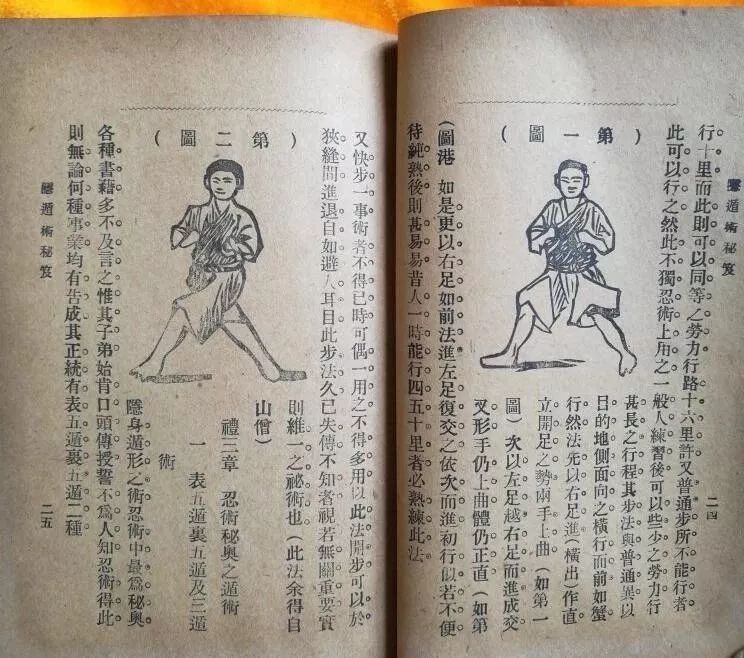 隱遁術秘笈
二四
行十里而此則可以同等之勞力行路十六里許又普通步所不能行者
此可以行之然此不獨忍術上用之一般人練習後可以些少之勞力行
(第一圖)
甚長之行程其步法與普通異以
目的地側面向之橫行而前如蟹
行然法先以右足進(橫出)作直
立開足之勢兩手上曲(如第一
圖)次以左足越右足而進成交
叉形手仍上曲體仍正直(如第
(圖港 如是更以右足如前法進左足復交之依次而進初行似若不便
待純熟後則甚易易昔人一時能行四五十里者必熟練此法
又快步一事術者不得已時可偶一用之不得多用以此法開步可以於
狹縫間進退自如避人耳目此步法久已失傳不知者視若無關重要實
(第二圖)
則維一之祕術也(此法余得自
山僧)
禮三章 忍術秘奧之遁術
一 表五遁裏五遁及三遁
術
隱身遁形之術忍術中最爲秘奧
各種書藉多不及言之惟其子弟始肯口頭傳授誓不爲人知忍術得此
則無論何種事業均有告成其正統有表五遁裏五遁二種
隱遁術秘笈
二五